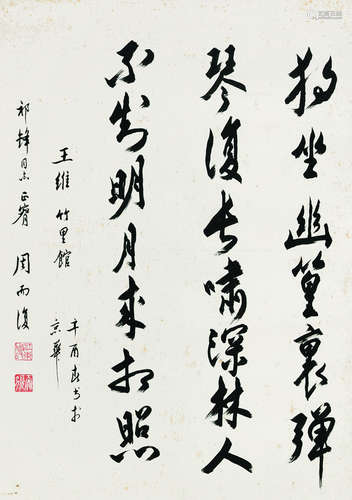 独坐幽篁裏弹
琴復长啸深林人
不知明月来相照
王维 竹里館
辛酉春书於
京华
祁锋同志正腕
周而復